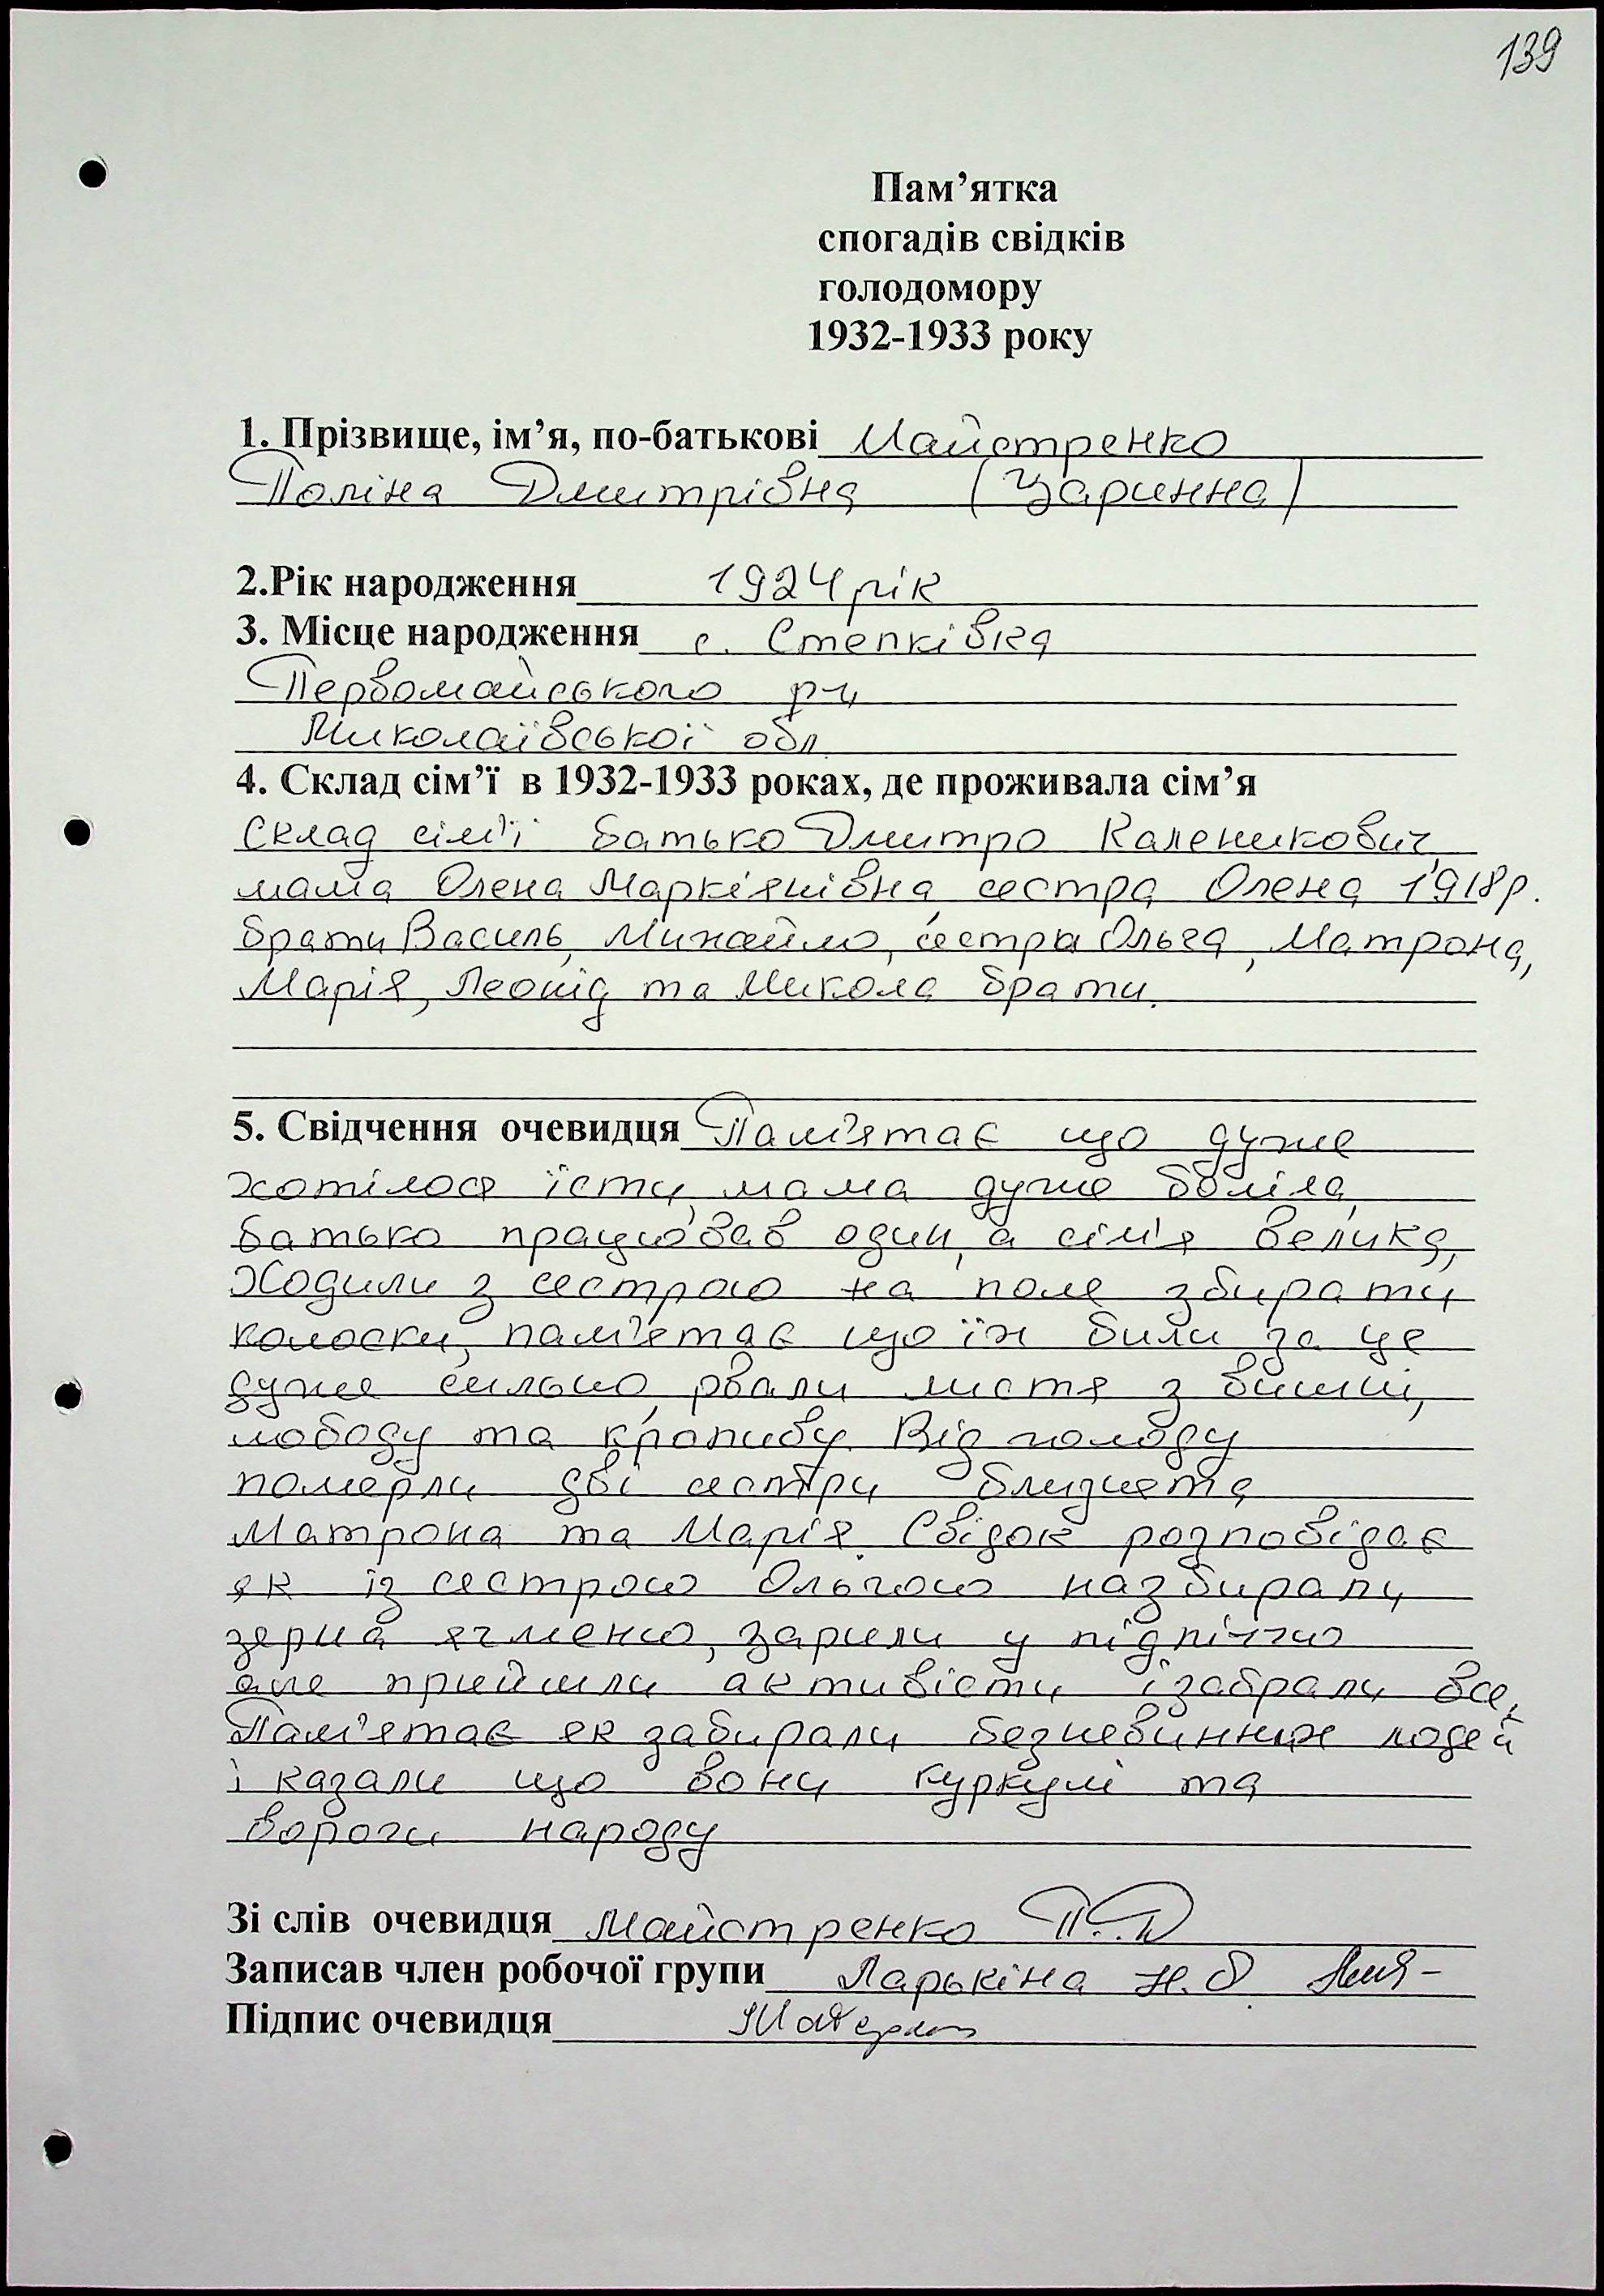 139
Пам’ятка
спогадів свідків
голодомору
1932-1933 року
1. Прізвище, ім’я, по-батькові Майстренко
Поліна Дмитрівна (Царинна)
2.Рік народження 1924 рік
3. Місце народження с. Степківка
Первомайського р-н
Миколаївської обл
4. Склад сім’ї в 1932-1933 роках, де проживала сім’я
Склад сім'ї батько Дмитро Каленикович,
мама Олена Маркіянівна, сестра Олена 1918р.
брати Василь, Михайло, сестри Ольга, Матрона,
Марія, Леонід та Микола брати.
5. Свідчення очевидця Пам'ятає що дуже
хотілося їсти, мама дуже боліла,
батько працював один, а сім'я велика,
Ходили з сестрою на поле збирати
колоски, пам'ятає що їх били за це
дуже сильно, рвали листя з вишні,
лободу та кропиву. Від голоду
померли дві сестри близнета
Матрона та Марія. Свідок розповідає
як із сестрою Ольгою назбирали
зерна ячменю, зарили у підпіччю
але прийшли активісти і забрали все,
Пам'ятає як забирали безневинних людей
і казали що вони куркулі та
вороги народу
Зі слів очевидця Майстренко П.Д
Записав член робочої групи Ларькіна Н.О
Підпис очевидця